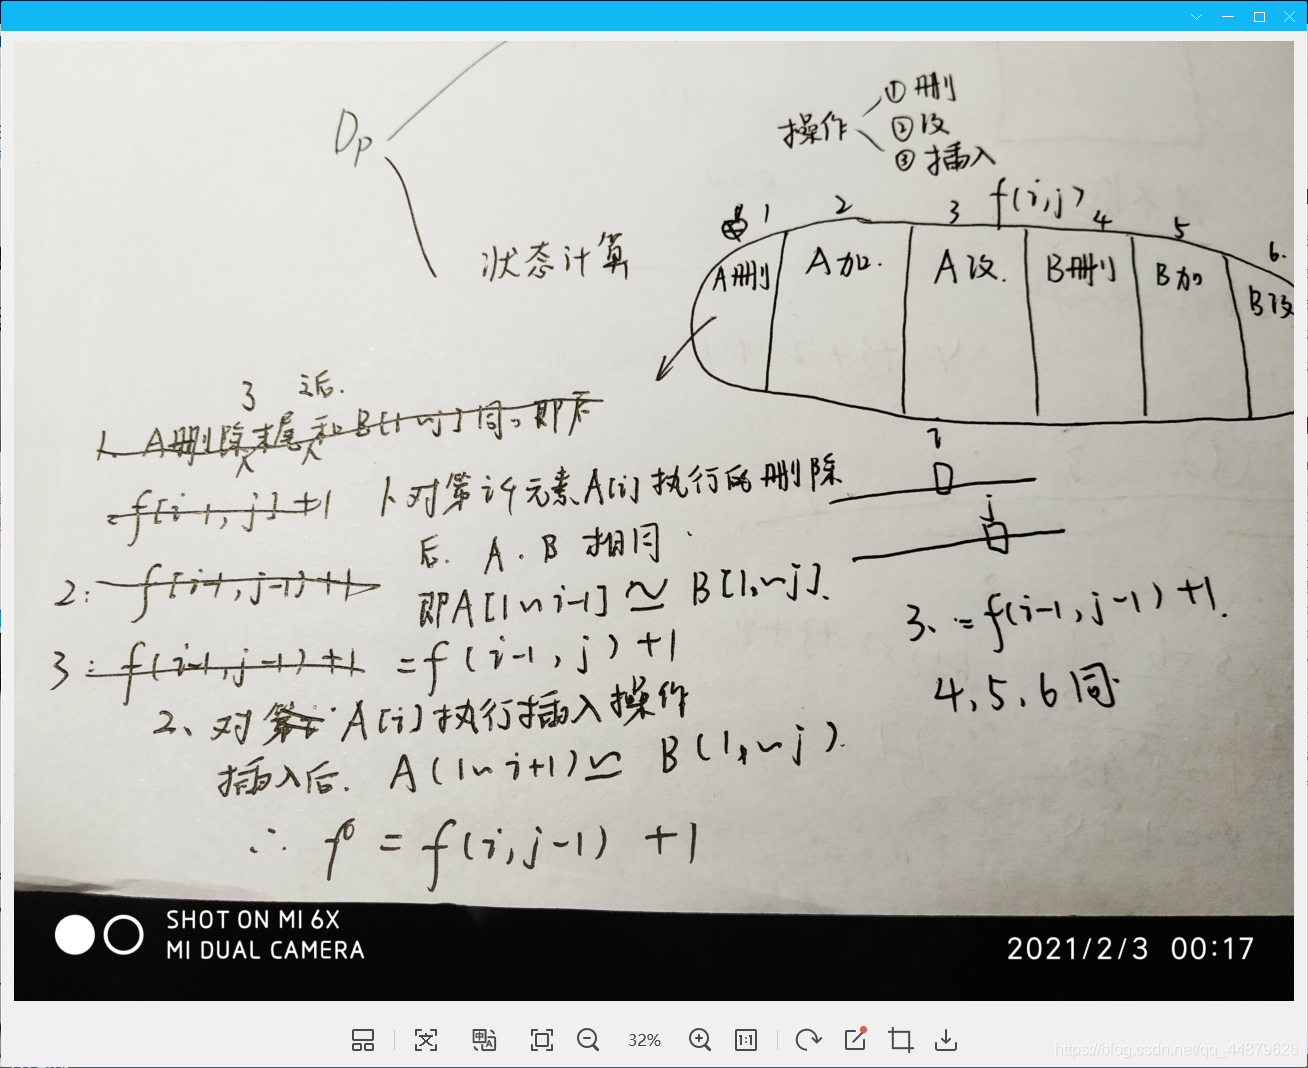 操作
① 删
② 改
③ 插入
Dp
状态计算
f(i,j)
1 2 3 4 5 6.
A删 A加. A改. B删 B加 B改
3 之后.
1. A删除末尾和B[1~j]同,即
f[i-1, j]+1
1. 对第i个元素A[i]执行的删除
后. A. B 相同.
即A[1~i-1] ≃ B[1,~j].
= f(i-1, j)+1
2: f[i-1, j-1]+1
3: f(i-1, j-1)+1
2、对第i A[i]执行插入操作
插入后. A(1~i+1) ≃ B(1,~j).
∴ f = f(i,j-1) +1
i
j
3、= f(i-1, j-1)+1.
4,5,6同.
SHOT ON MI 6X
MI DUAL CAMERA
2021/2/3 00:17
32%
1:1
https://blog.csdn.net/qq_44879626